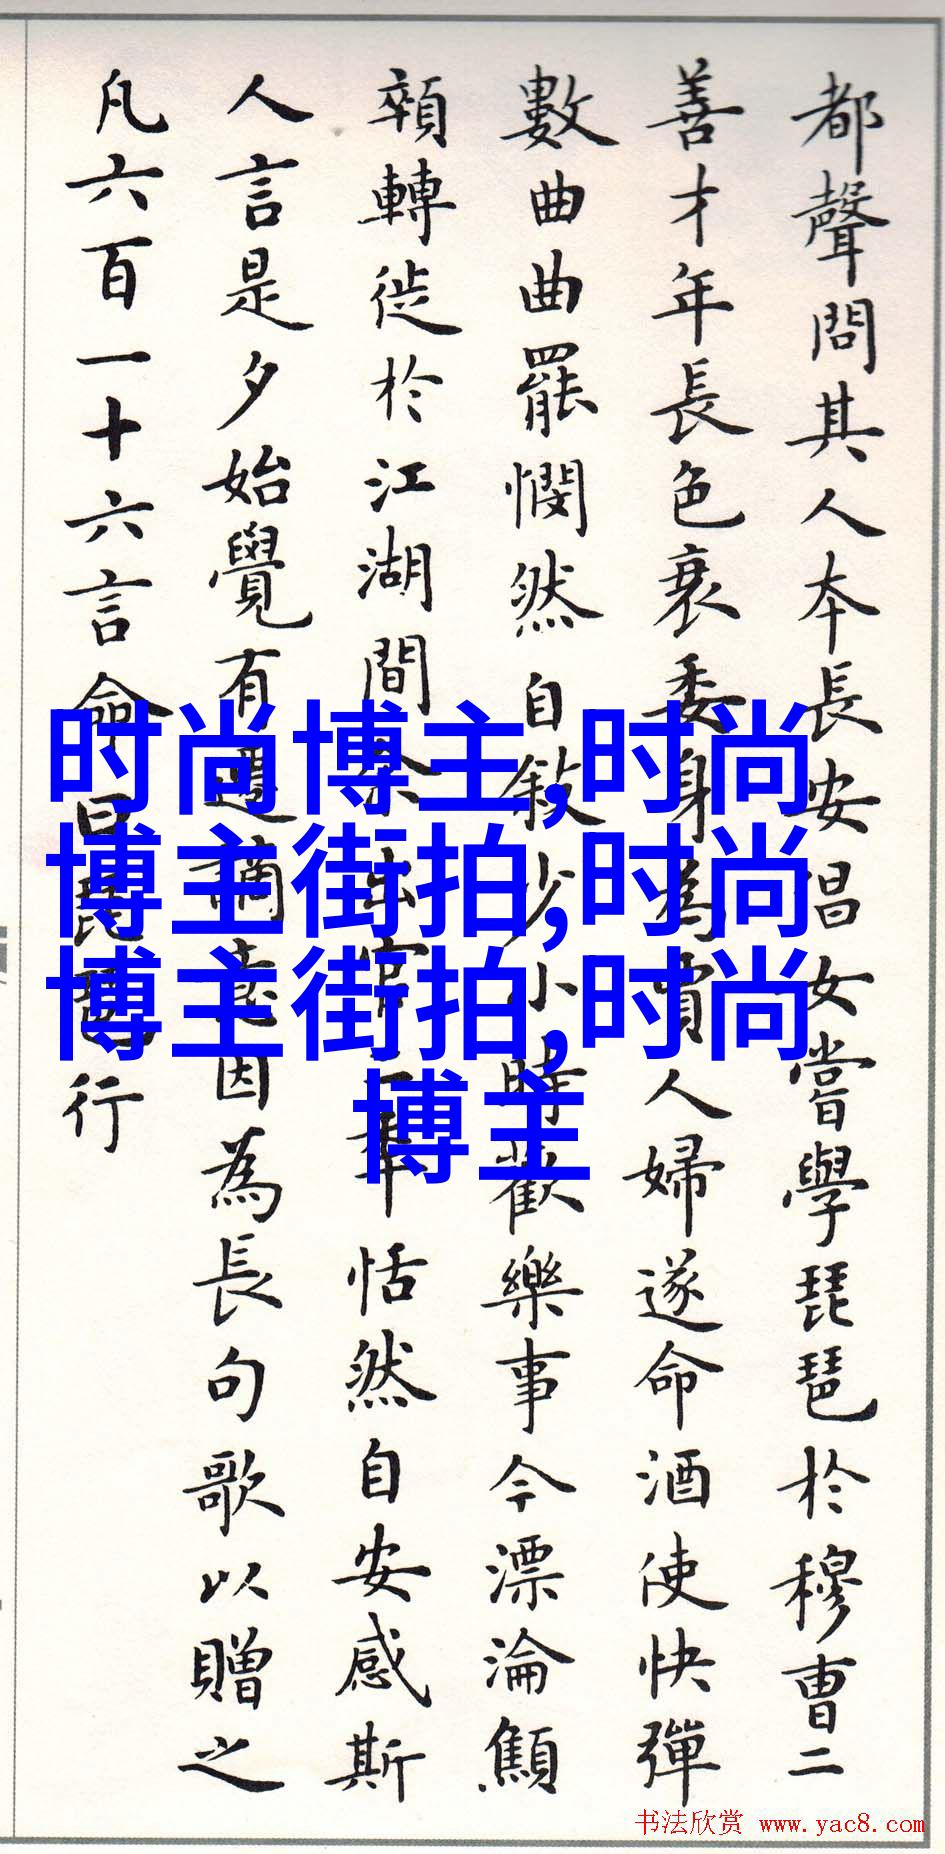 都聲問其人本長安倡女嘗學琵琶於穆曹二
善才年長色衰委身為賈人婦遂命酒使快彈
數曲曲罷憫然自敍少小時歡樂事今漂淪顦
顇轉徙於江湖間余出官二年恬然自安感斯
人言是夕始覺有遷謫意因為長句歌以贈之
凡六百一十六言命曰琵琶行
时尚博主,时尚
博主街拍,时尚
博主街拍,时尚
博主
书法欣赏 www.yac8.com